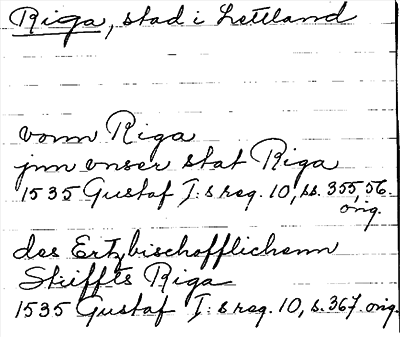 Riga, stad i Lettland
vonn Riga
jnn vnser stat Riga
1535 Gustaf I:s reg. 10, ss. 355, 56.
orig.
des Ertzbischofflichenn
Stiffts Riga
1535 Gustaf I:s reg. 10, s. 367. orig.